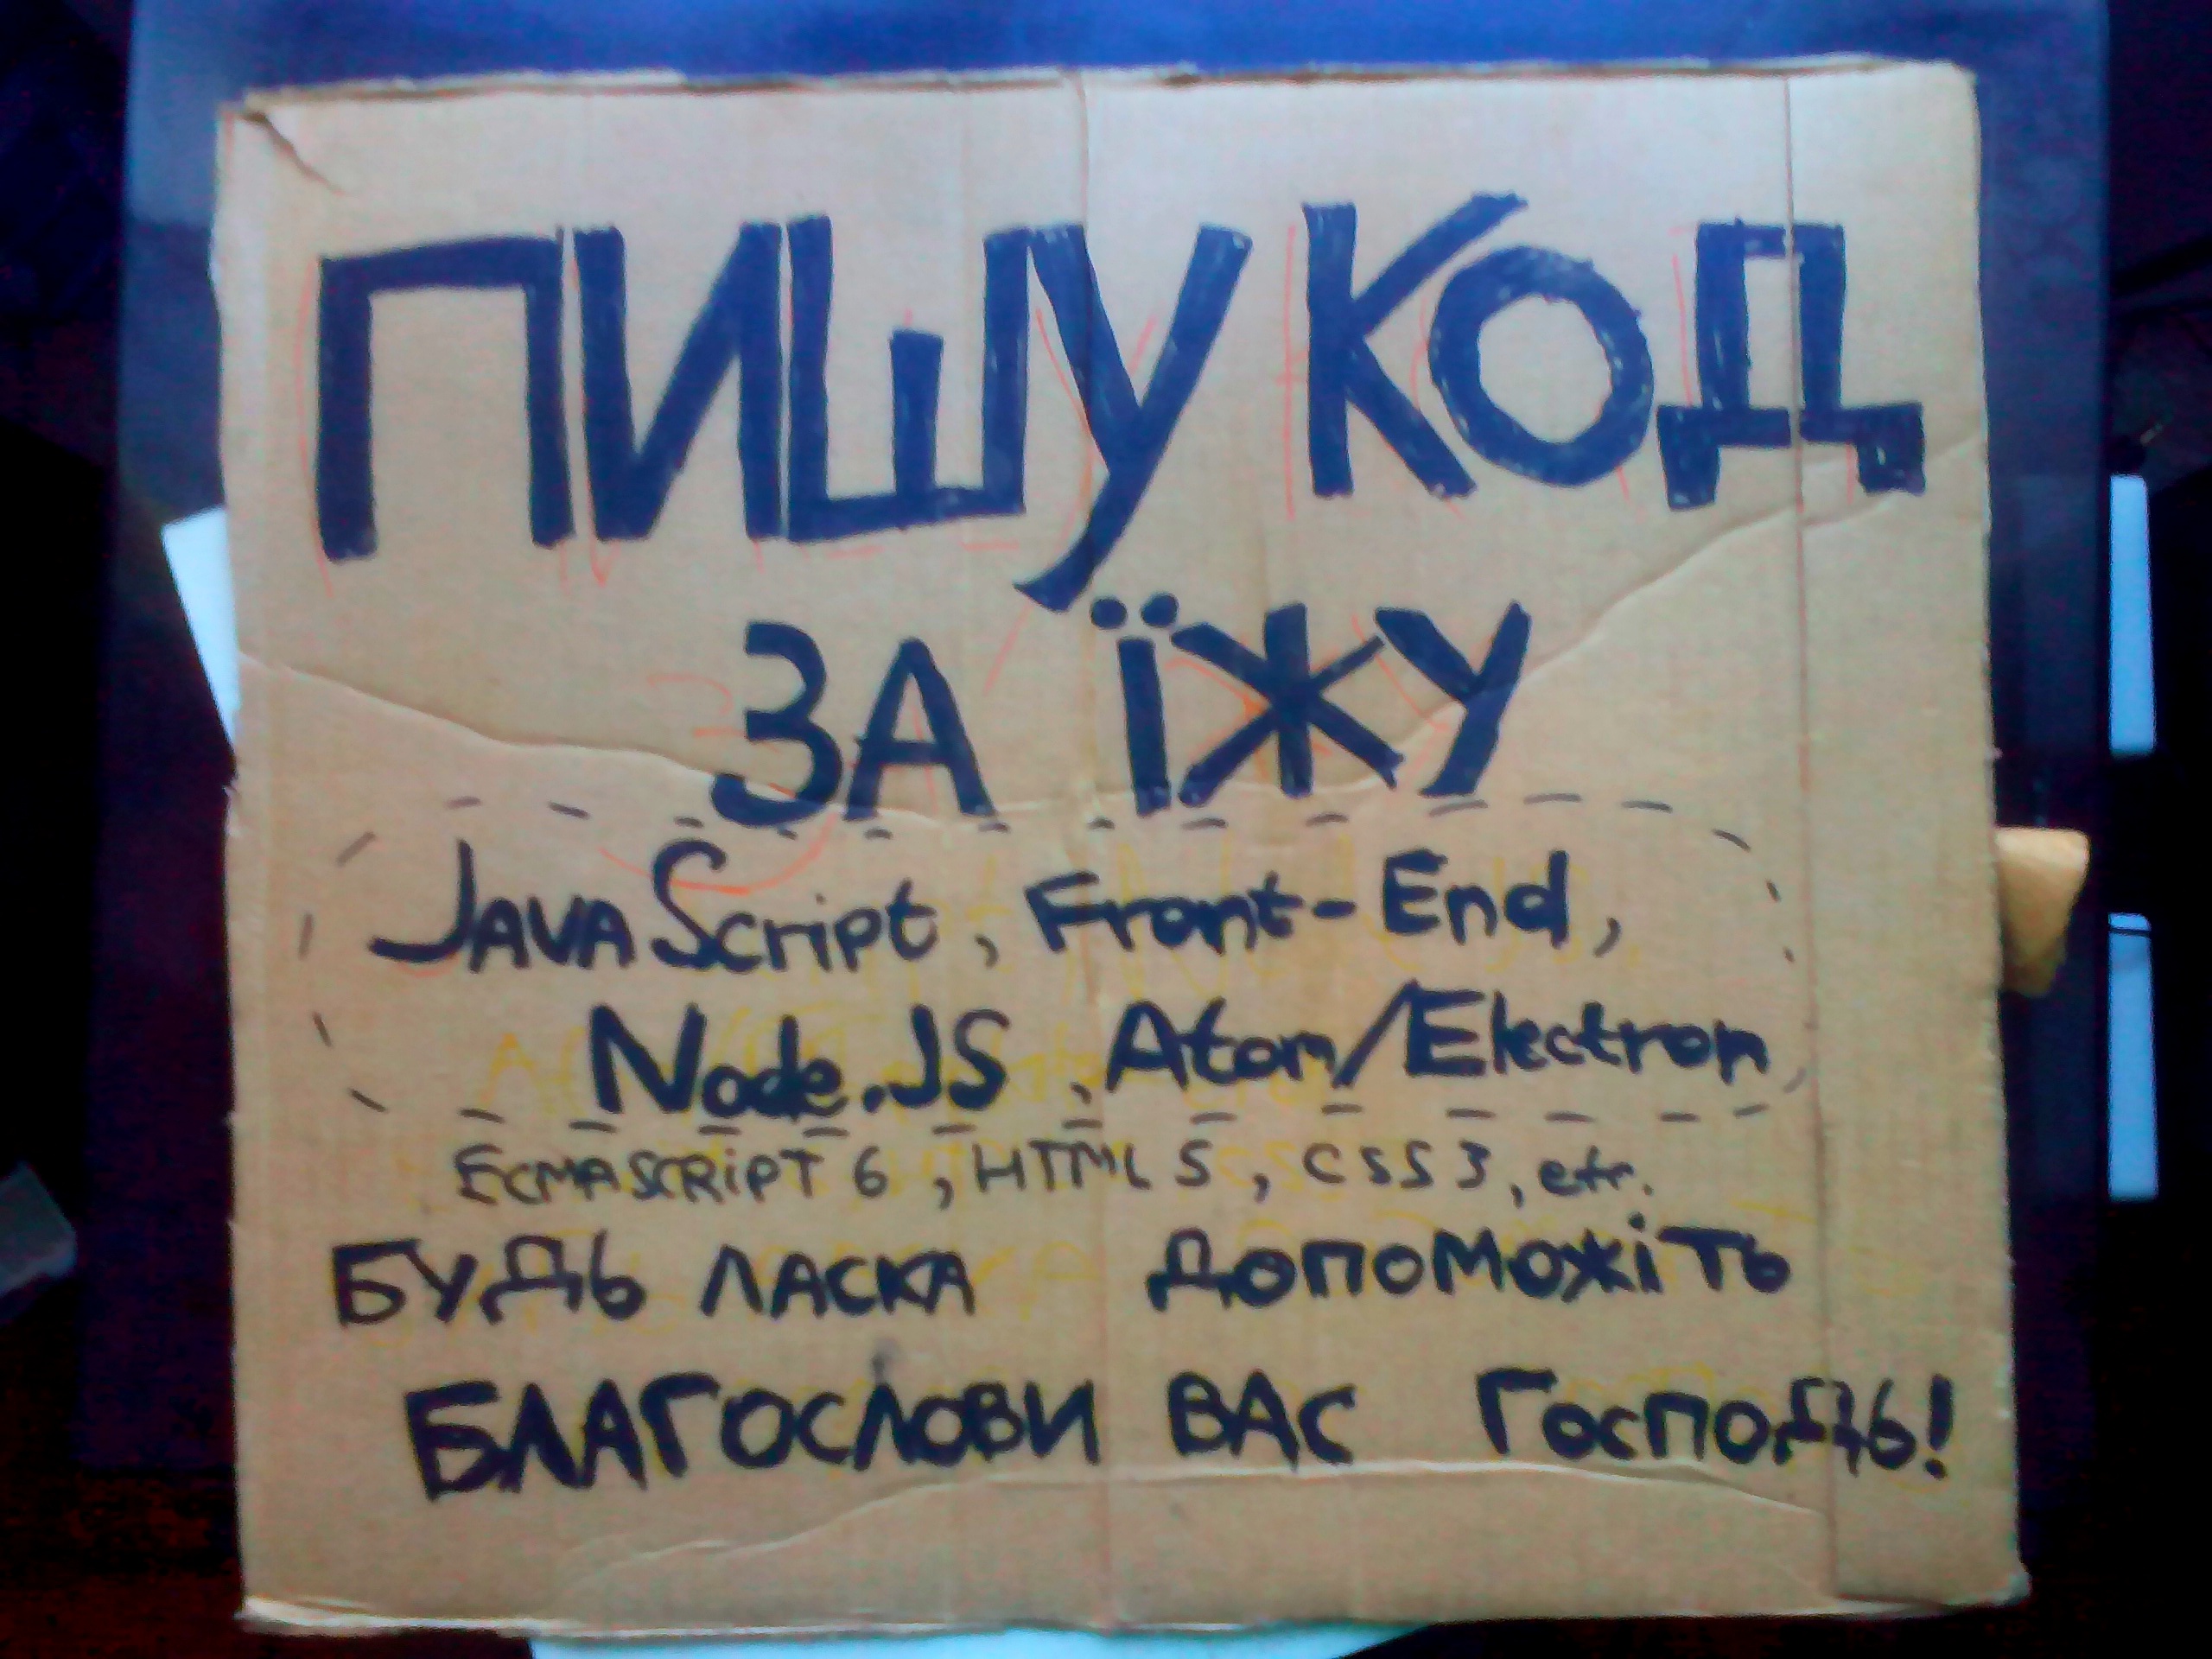 ПИШУ КОД
ЗА ЇЖУ
JAVAScript, Front-End,
Node.JS, Atom/Electron
ECMASCRiPT 6, HTML 5, CSS 3, etc.
БУДЬ ЛАСКА ДОПОМОЖіТЬ
БЛАГОСЛОВИ ВАС ГОСПОДЬ!